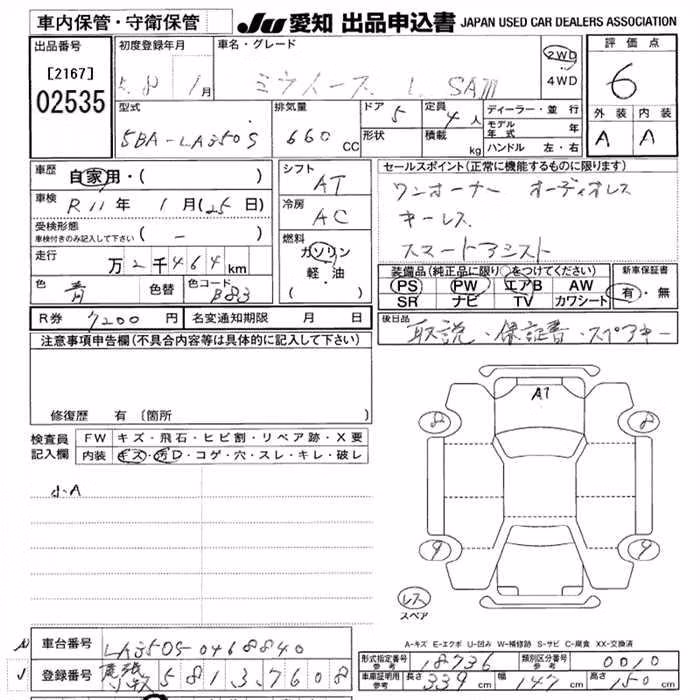 車内保管・守衛保管 JU 愛知 出品申込書 JAPAN USED CAR DEALERS ASSOCIATION
出品番号 [2167] 02535
初度登録年月 5.8 1月
車名・グレード ミライース L SAⅢ
2WD 4WD
評価点 6
外装 内装 A A
型式 5BA-LA350S
排気量 660 CC
ドア 5
形状
定員 4人
積載 kg
ディーラー・並行
モデル年式 年
ハンドル 左・右
車歴 自家用・( )
車検 R11年 1月(25日)
受検形態 車検付きのみ記入して下さい ( - )
走行 万2千464km
色 青 色替 色コード B83
シフト AT
冷房 AC
燃料 ガソリン 軽・油 ( ・ )
セールスポイント(正常に機能するものに限ります)
ワンオーナー オーディオレス
キーレス
スマートアシスト
装備品(純正品に限り○をつけてください)
PS PW エアB AW
SR ナビ TV カワシート
新車保証書 有・無
R券 7200円 名変通知期限 月 日
後日品 取説・保証書・スペアキー
注意事項申告欄(不具合内容等は具体的に記入して下さい)
修復歴 有 〔箇所 〕
検査員記入欄
FW キズ・飛石・ヒビ割・リペア跡・X要
内装 キズ・汚D・コゲ・穴・スレ・キレ・破レ
小A
A1
8 8
9 9
レス スペア
A-キズ E-エクボ U-凹み W-補修跡 S-サビ C-腐食 XX-交換済
車台番号 LA350S-0468840
登録番号 尾張小牧 581 3 7608
形式指定番号 参考 18736 類別区分番号 参考 0010
車庫証明用 参考 長さ 339 cm 幅 147 cm 高さ 150 cm